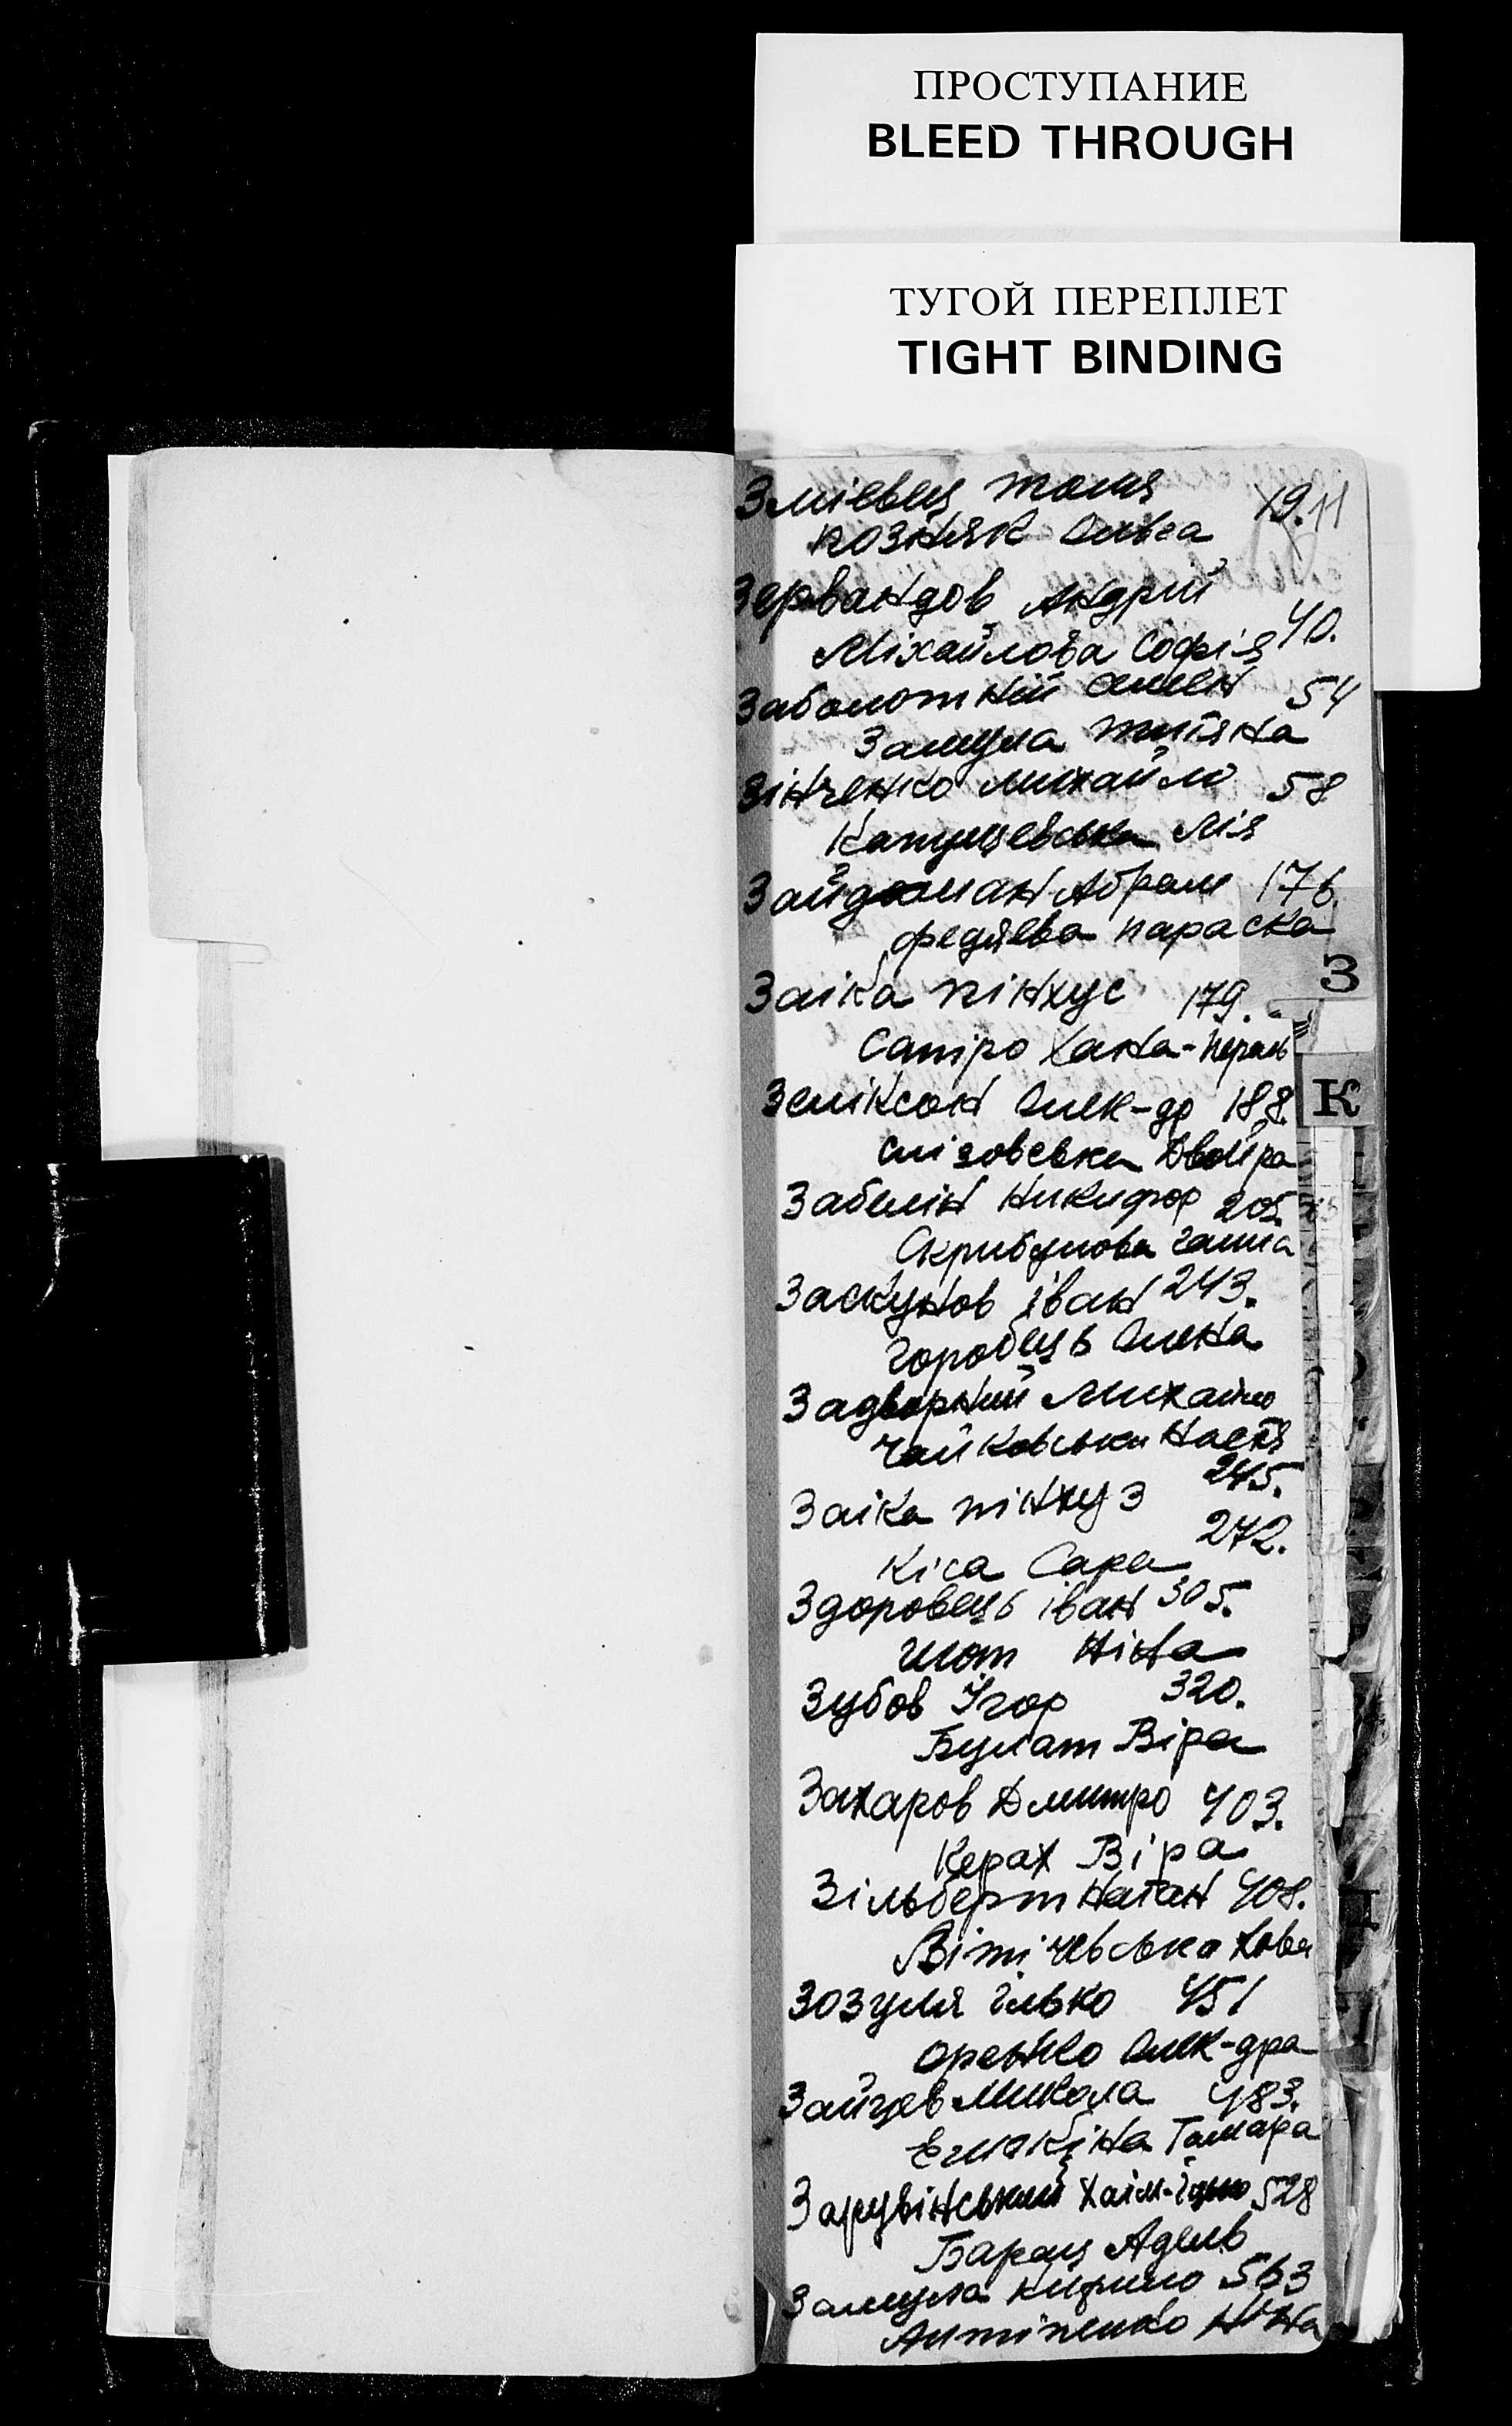 ПРОСТУПАНИЕ
BLEED THROUGH
ТУГОЙ ПЕРЕПЛЕТ
TIGHT BINDING
Змієвец
Позняк Ольга
Зервандов Андрій
Міхайлова Софія 40.
Заболотній Семен 54
Замула Тит'яна
Зінченко Михайло 58
Лія
Зайдман Абрам 176.
Федяєва Параска
З
Заіка Пінхус 179.
Сапіро Хана-Перль
К
Зеліксон Олек-др 188.
Двойра
Забелін Никифор 205.
Ганна
Заскунов Іван 243.
Горобець Олена
Задворний Михайло
Чайковська Настя
245.
Заіка Пінхуз
272.
Кіса Сара
Здоровець Іван 305.
Шот Ніна
Зубов Ігор 320.
Булат Віра
Захаров Дмитро 403.
Керах Віра
Зільберт Натан 408.
Вітічевська Хова
Зозуля Гилько 451
Оренко Олек-дра
Зайцев Микола 483.
Єлмакіна Тамара
Зарувінський Хаім- 528
Барац Адель
Замула Кирило 563
Антіпенко Ніна